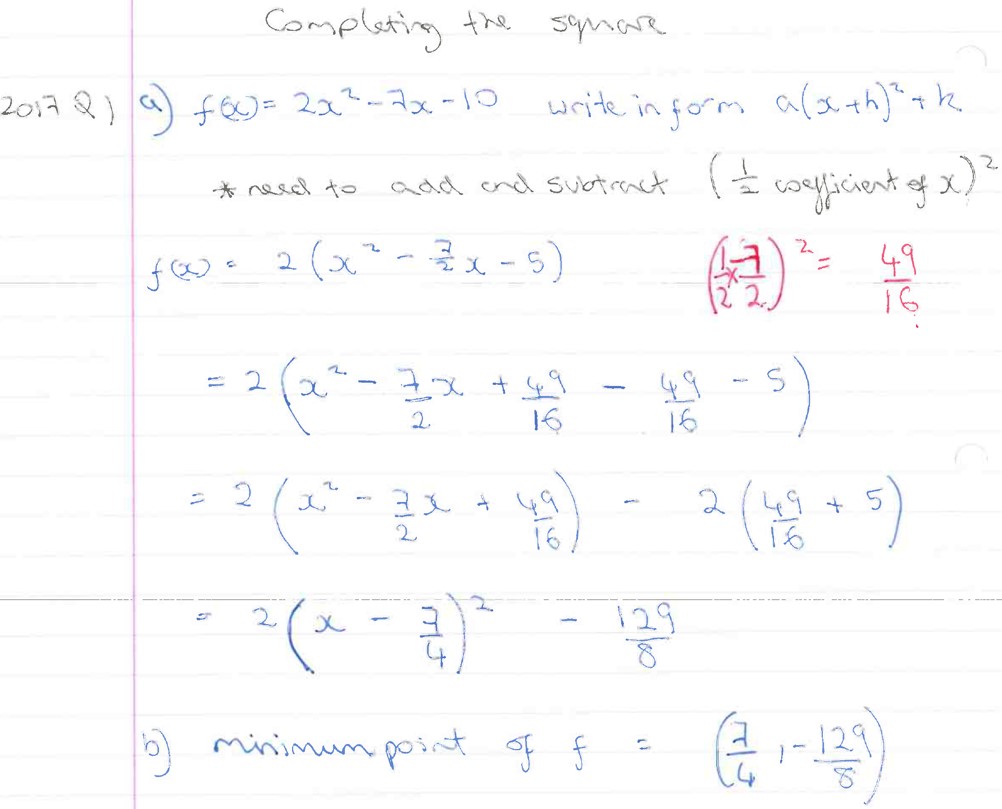 Completing the square
2017 Q1 a) f(x) = 2x² - 7x - 10 write in form a(x+h)² + k
* need to add and subtract (1/2 coefficient of x)²
f(x) = 2(x² - 7/2 x - 5) (1/2 × 7/2)² = 49/16
= 2(x² - 7/2 x + 49/16 - 49/16 - 5)
= 2(x² - 7/2 x + 49/16) - 2(49/16 + 5)
= 2(x - 7/4)² - 129/8
b) minimum point of f = (7/4, -129/8)